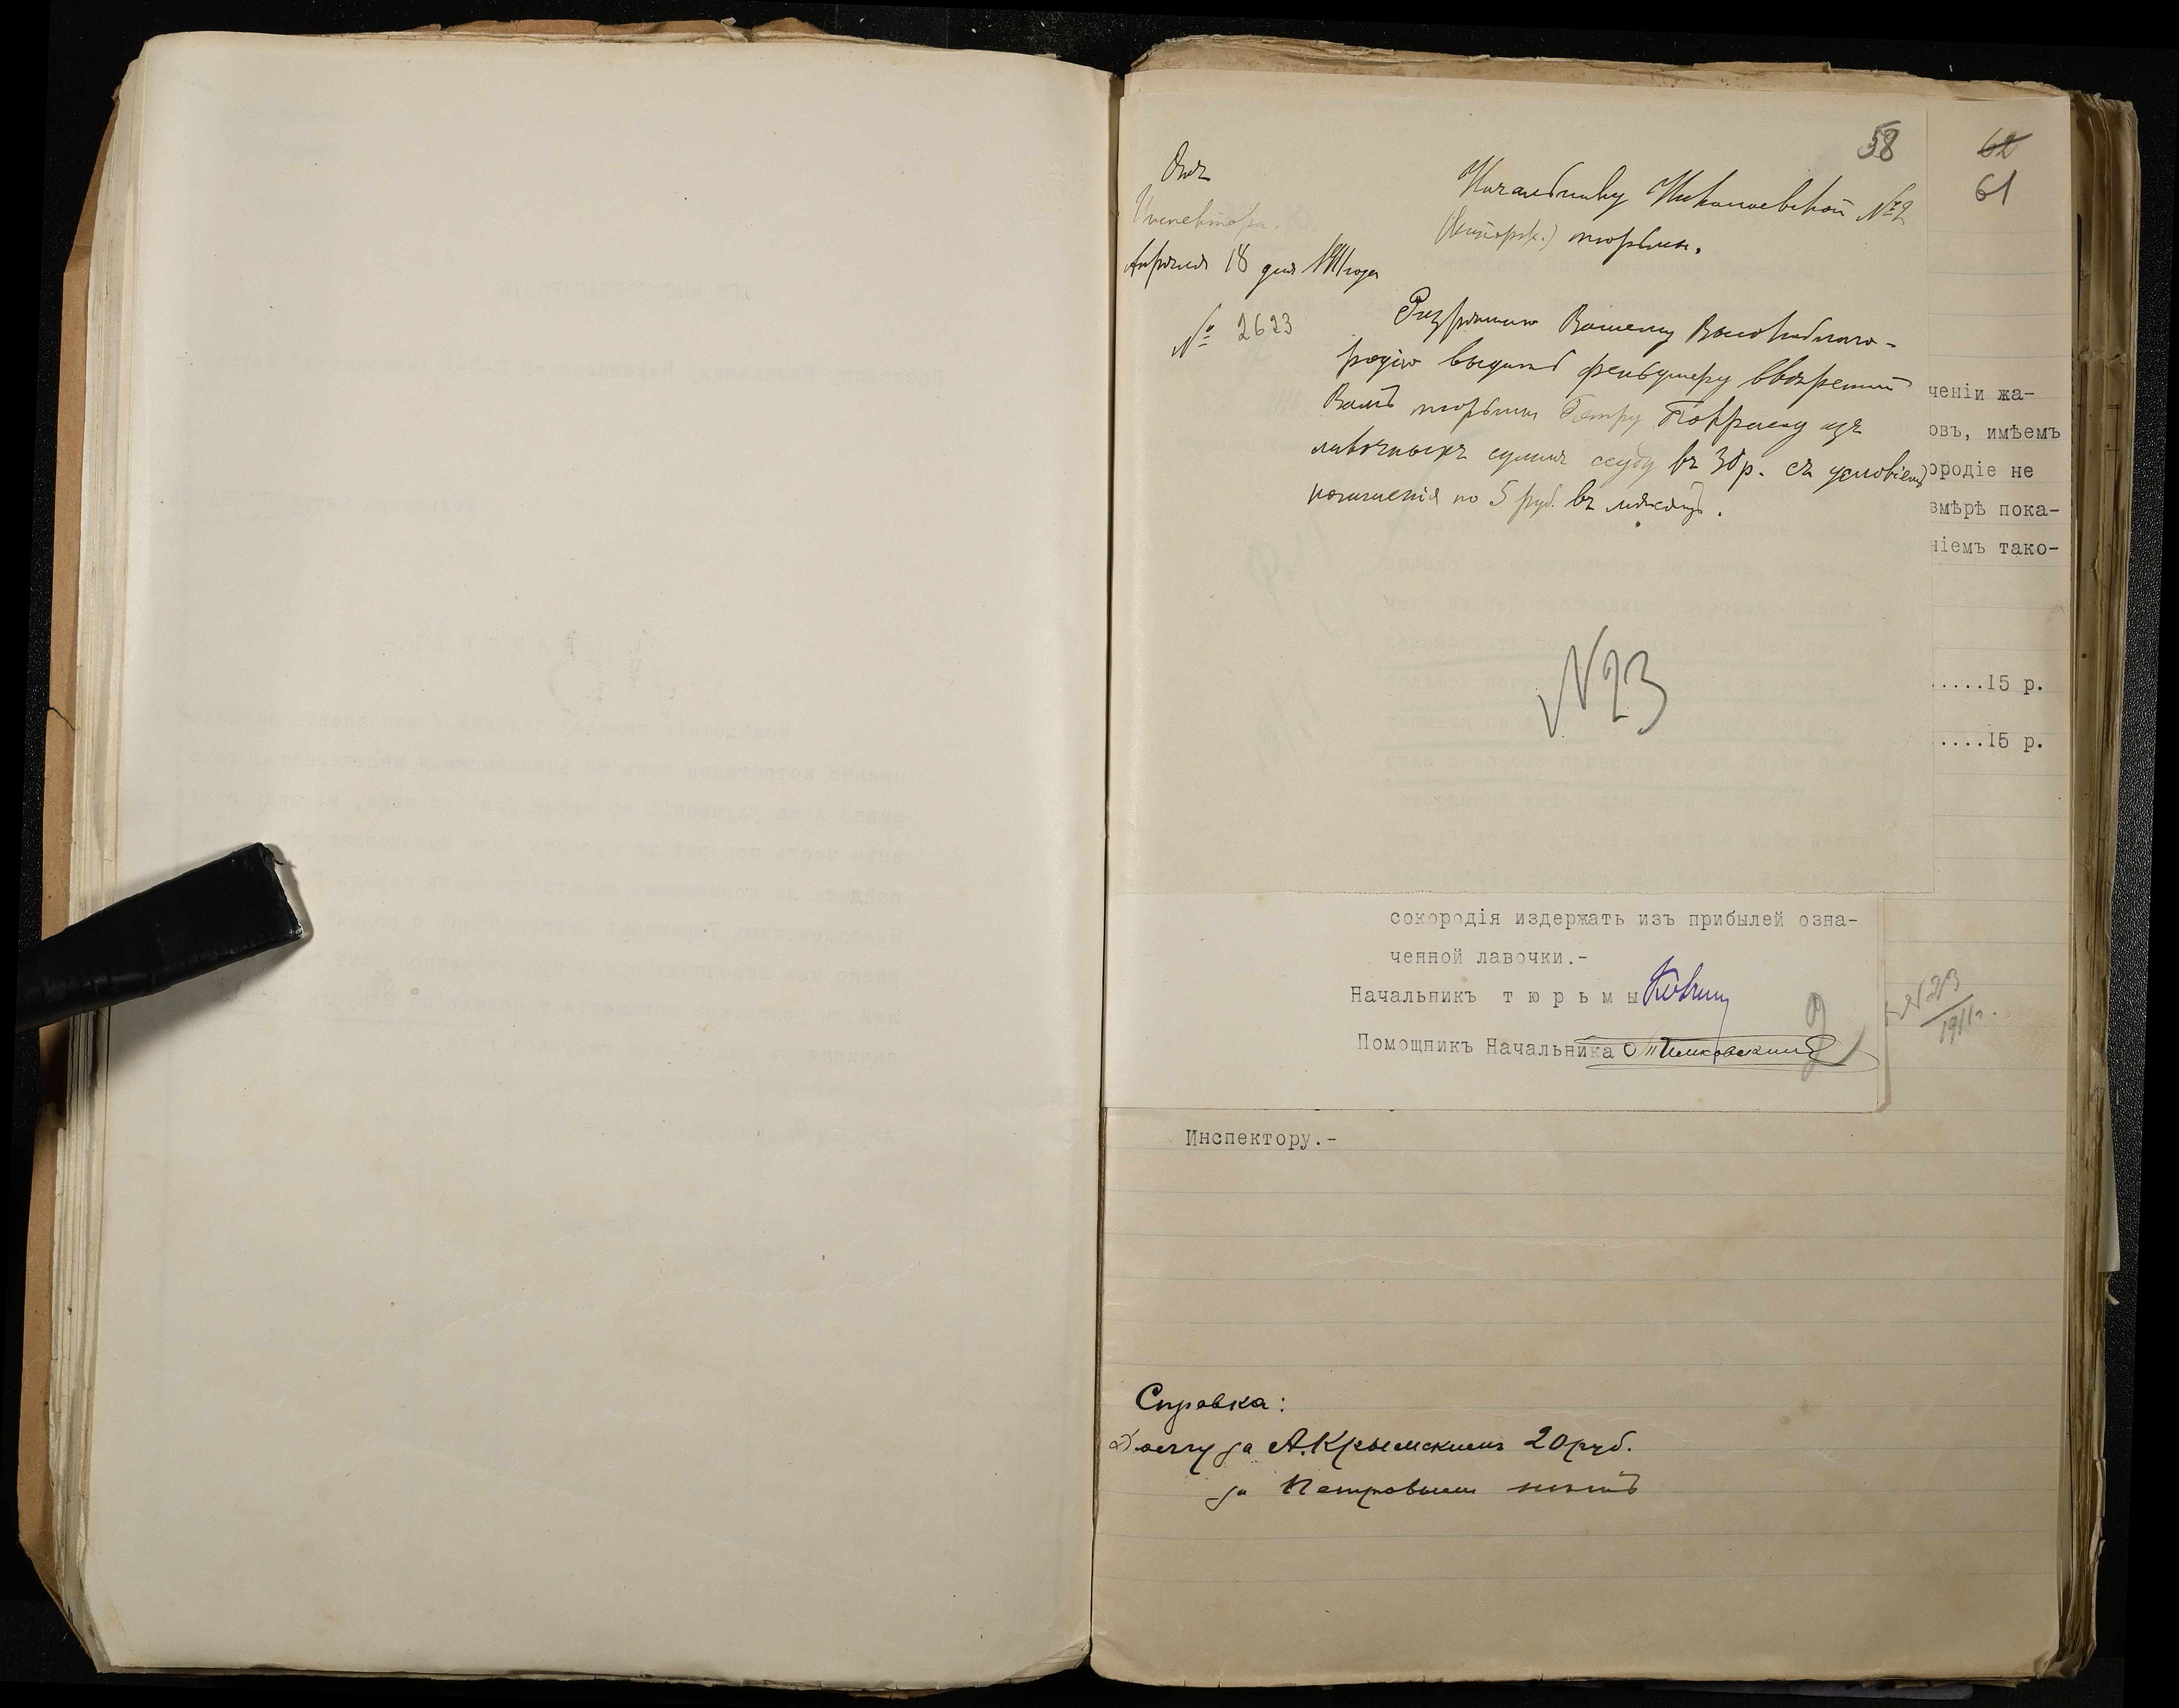 58
62
61
Отъ
Инспектора.
Апрѣля 18 дня 1911 года
№ 2623
Начальнику Николаевской №2
(каторж.) тюрьмы.
Разрѣшаю Вашему Высокоблаго-
родію выдать фельдшеру ввѣренной
Вамъ тюрьмы Петру изъ
лавочныхъ суммъ ссуду въ 30 р. съ условіемъ
погашенія по 5 руб. въ мѣсяцъ.
N23
ченіи жа-
овъ, имѣемъ
ородіе не
змѣрѣ пока-
ніемъ тако-
.....15 р.
....15 р.
сокородія издержать изъ прибылей озна-
ченной лавочки.-
Начальникъ т ю р ь м ы
Помощникъ Начальника
N23
1911 г.
Инспектору.-
Справка:
Долгу за А.Крымскимъ 20 руб.
за Петровымъ нѣтъ